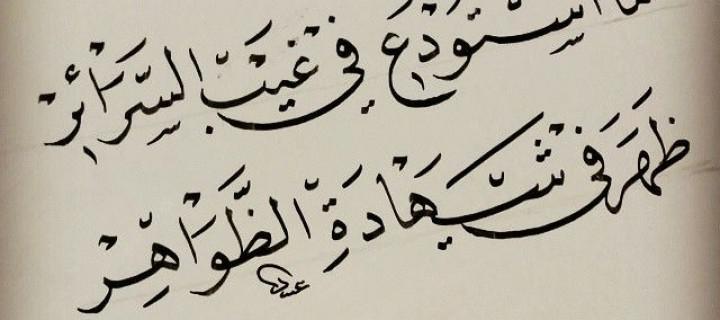 ما استودع في غيب السرائر
ظهر في شهادة الظواهر